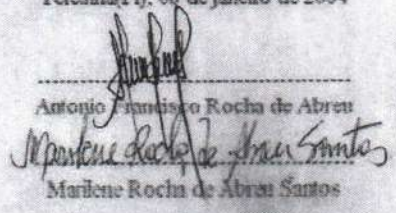 Teresina(PI), 06 de janeiro de 2004
Antonio Francisco Rocha de Abreu
Marilene Rocha de Abreu Santos
Marilene Rocha de Abreu Santos